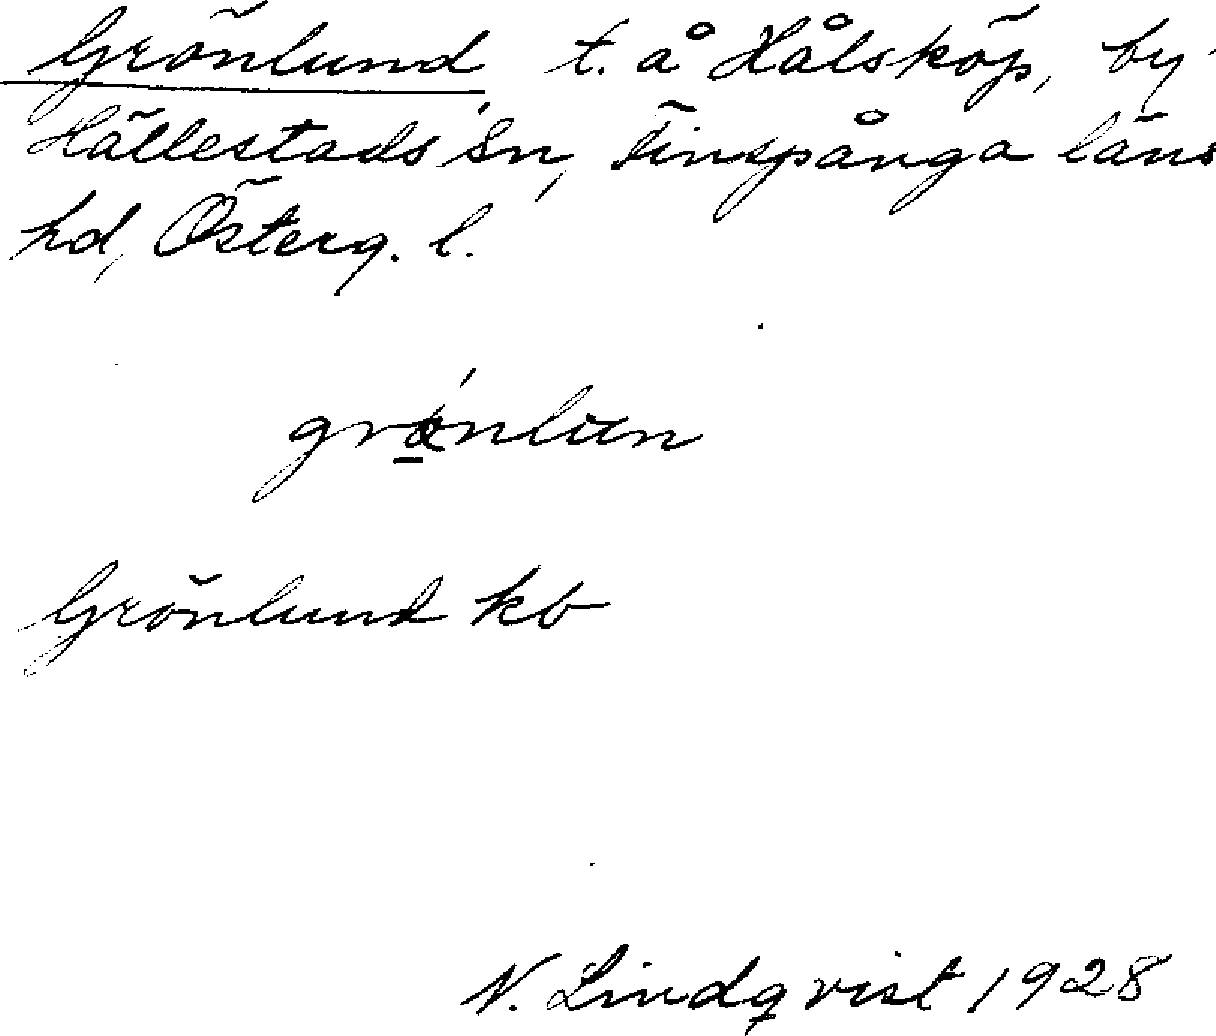 Grönlund t. å Hålsköp, by
Hällestads sn, Finspånga läns
hd, Österg. l.
Grönlund kb
N. Lindqvist 1928